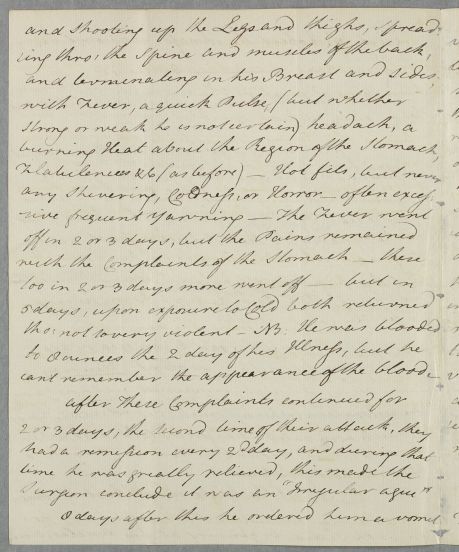 and shooting up the Legs and thighs, spread-
ing thro: the Spine and muscles of the back,
and terminating in his Breast and Sides,
with Fever, a quick Pulse, (but whether
strong or weak he is not certain) headach, a
burning Heat about the Region of the Stomach,
Flatulencies &c (as before) — Hot fits, but never
any Shivering, Coldness, or Horror — often exces-
sive frequent Yawning — The Fever went
off in 2 or 3 days, but the Pains remained
with the Complaints of the Stomach — these
too in 2 or 3 days more went off — but in
5 days, upon exposure to Cold both returned
tho: not so very violent — NB. He was blooded
to 8 ounces the 2 day of his Illness, but he
cant remember the appearance of the blood.
after These Complaints continued for
2 or 3 days, the second time of their attack, they
had a remission every 2d day, and during that
time he was greatly relieved, this made the
Surgeon conclude it was an "Irregular ague"
8 days after this he ordered him a vomit